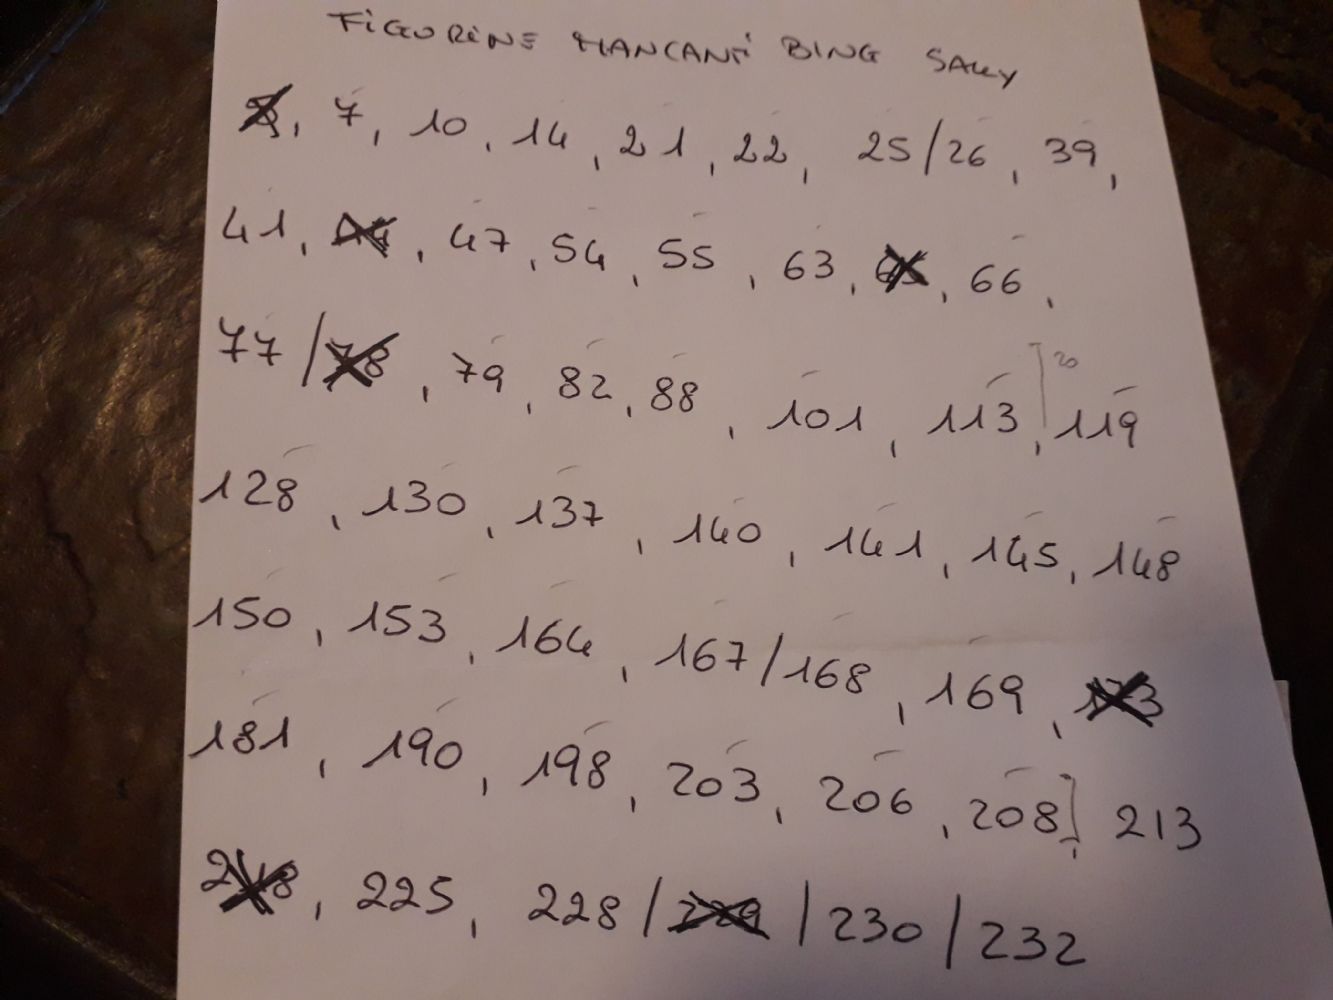 FIGURINE MANCANTI BING SALLY
7, 10, 14, 21, 22, 25/26, 39,
41, 44, 47, 54, 55, 63, 65, 66,
77/78, 79, 82, 88, 101, 113, 20 119
128, 130, 137, 140, 141, 145, 148
150, 153, 164, 167/168, 169, 173
181, 190, 198, 203, 206, 208] 213
218, 225, 228/229/230/232